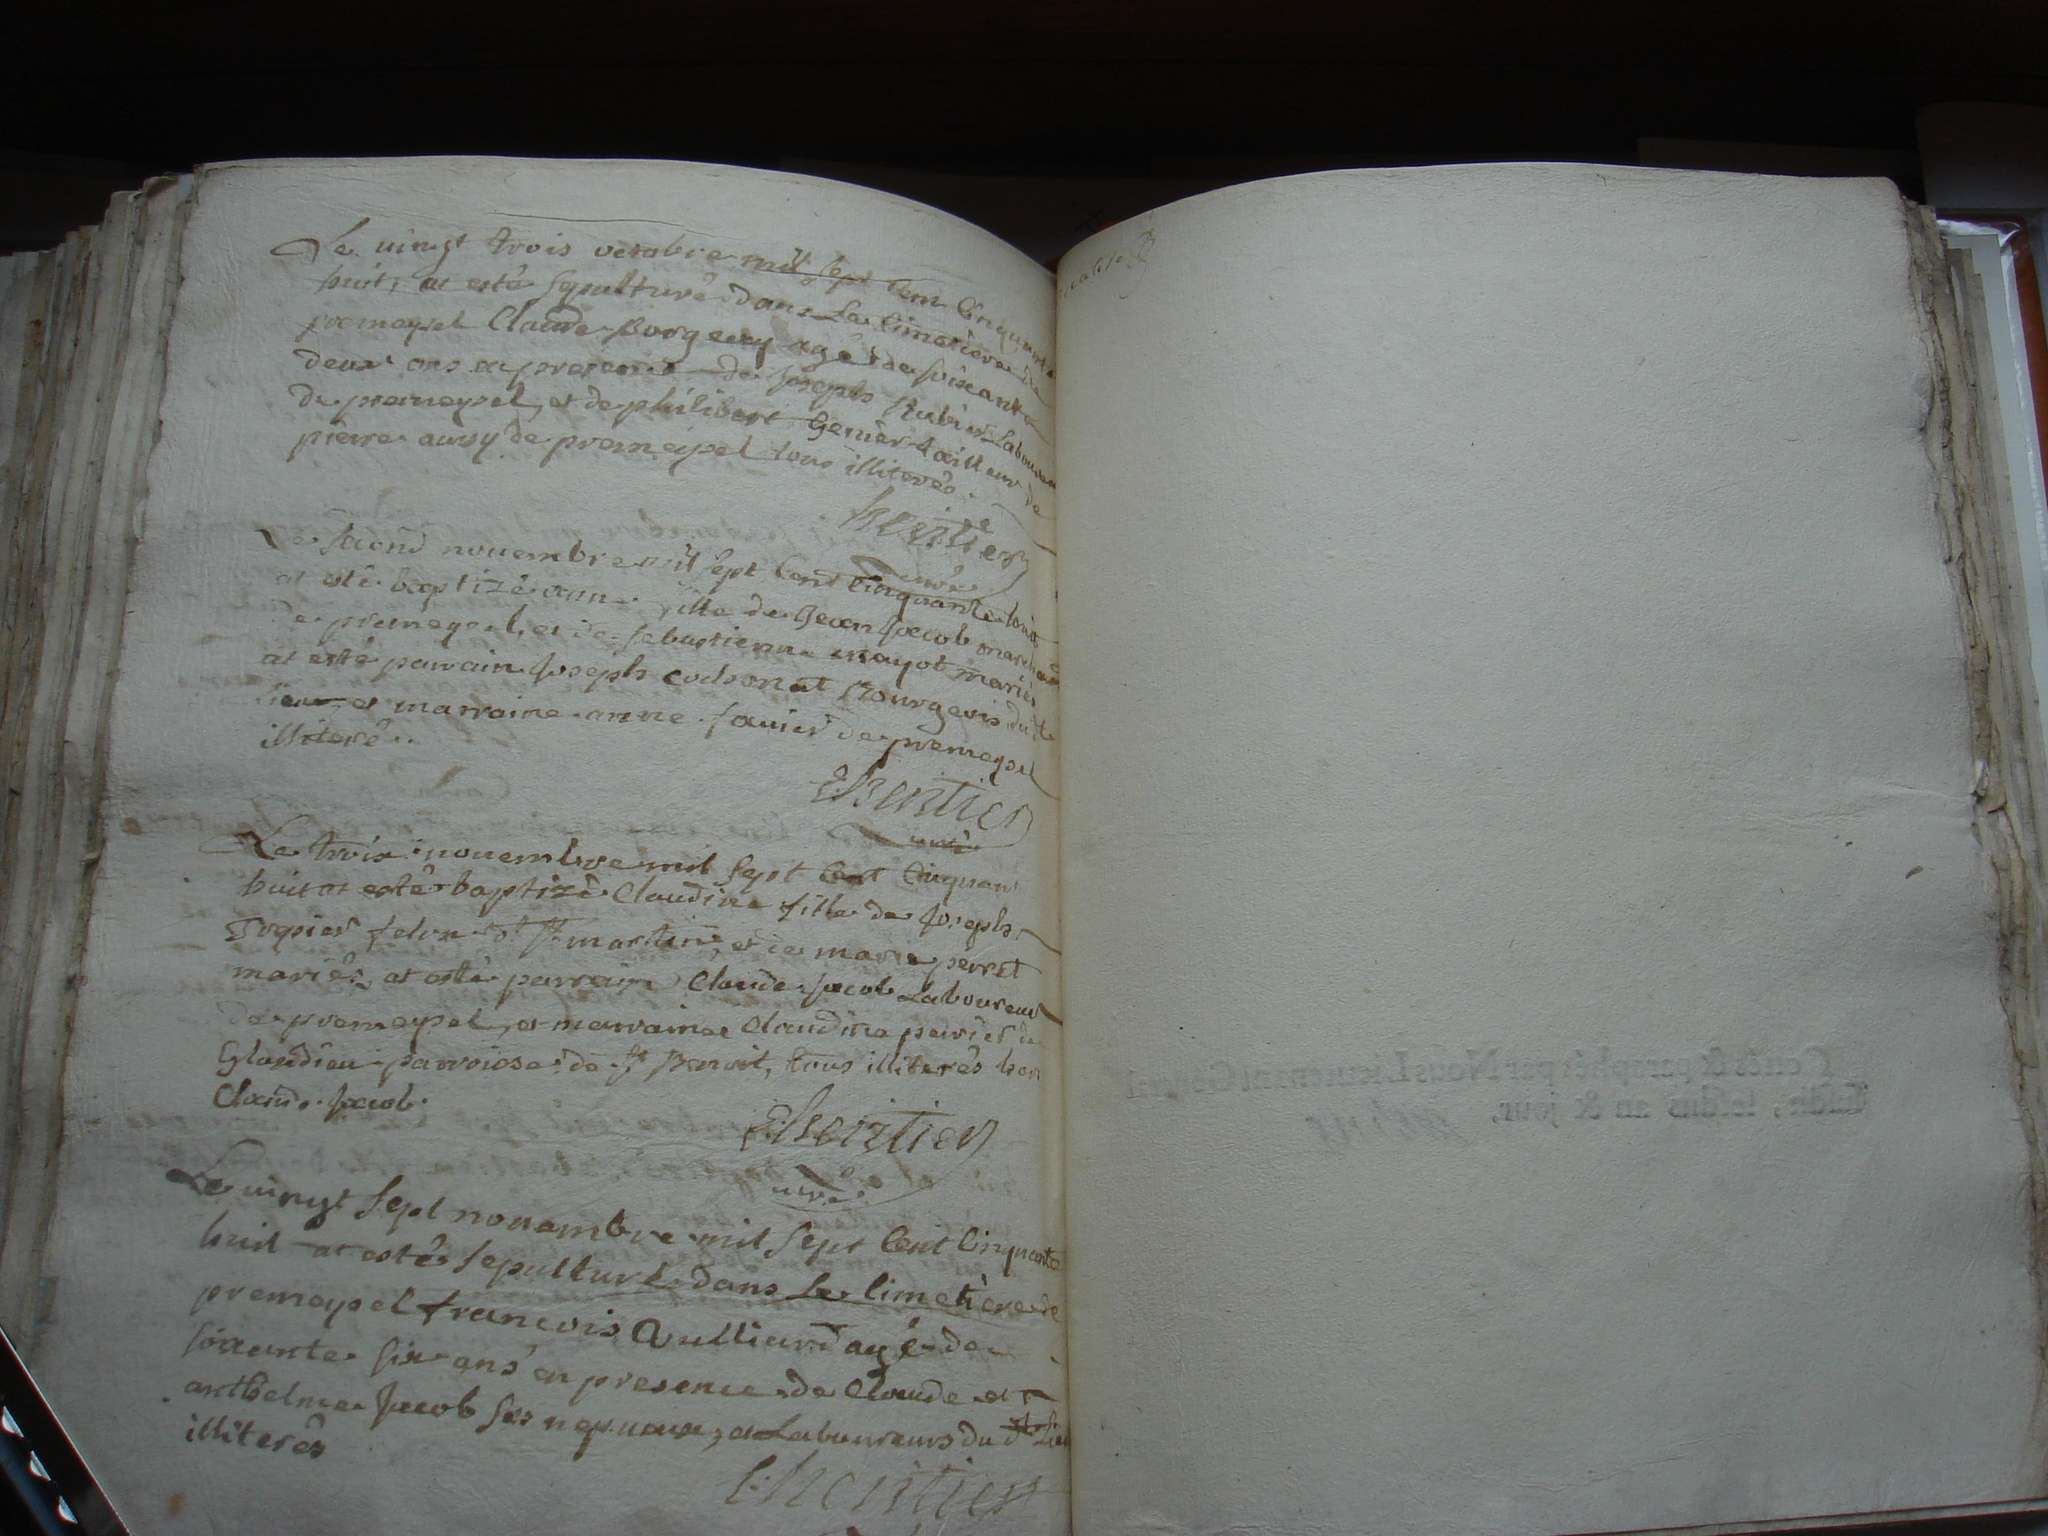 Le vingt trois octobre mil sept cent cinquante
huit, at esté sepulturé dans le cimetiere de
premeysel Claude Borgeey agé de soixante
deux ans en presence de Joseph Rubier Laboureur
de premeysel, et de philibert Genier tailleur de
pierre aussy de premeysel tous illiterés.
heritier
curé
Le second novembre mil sept cent cinquante huit
at esté baptizé anne fille de Jean Jacob marchand
de premeysel, et de sebastienne mayot mariés
at esté parrain Joseph Bourgeois du dt
lieu et marraine anne favier de premeysel
illiteré.
heritier
curé
Le trois novembre mil sept cent cinquante
huit at esté baptizé Claudine fille de Joseph
de st martin, et de marie perret
mariés, at esté parrain Claude Jacob Laboureur
de premeysel, et marraine Claudine perret de
Glandieu parroisse de st Benoit, tous illiterés hors
Claude Jacob.
heritier
curé
Le vingt sept novembre mil sept cent cinquante
huit at esté sepulturé dans le cimetiere de
premeysel francois Qulliard agé de
soixante six ans en presence de Claude et
anthelme Jacob ses nepveux, et Laboureurs du dt Lieu
illiterés
heritier
Cottés & paraphés par Nous Lieutenant Général
susdit, lesdits an & jour.